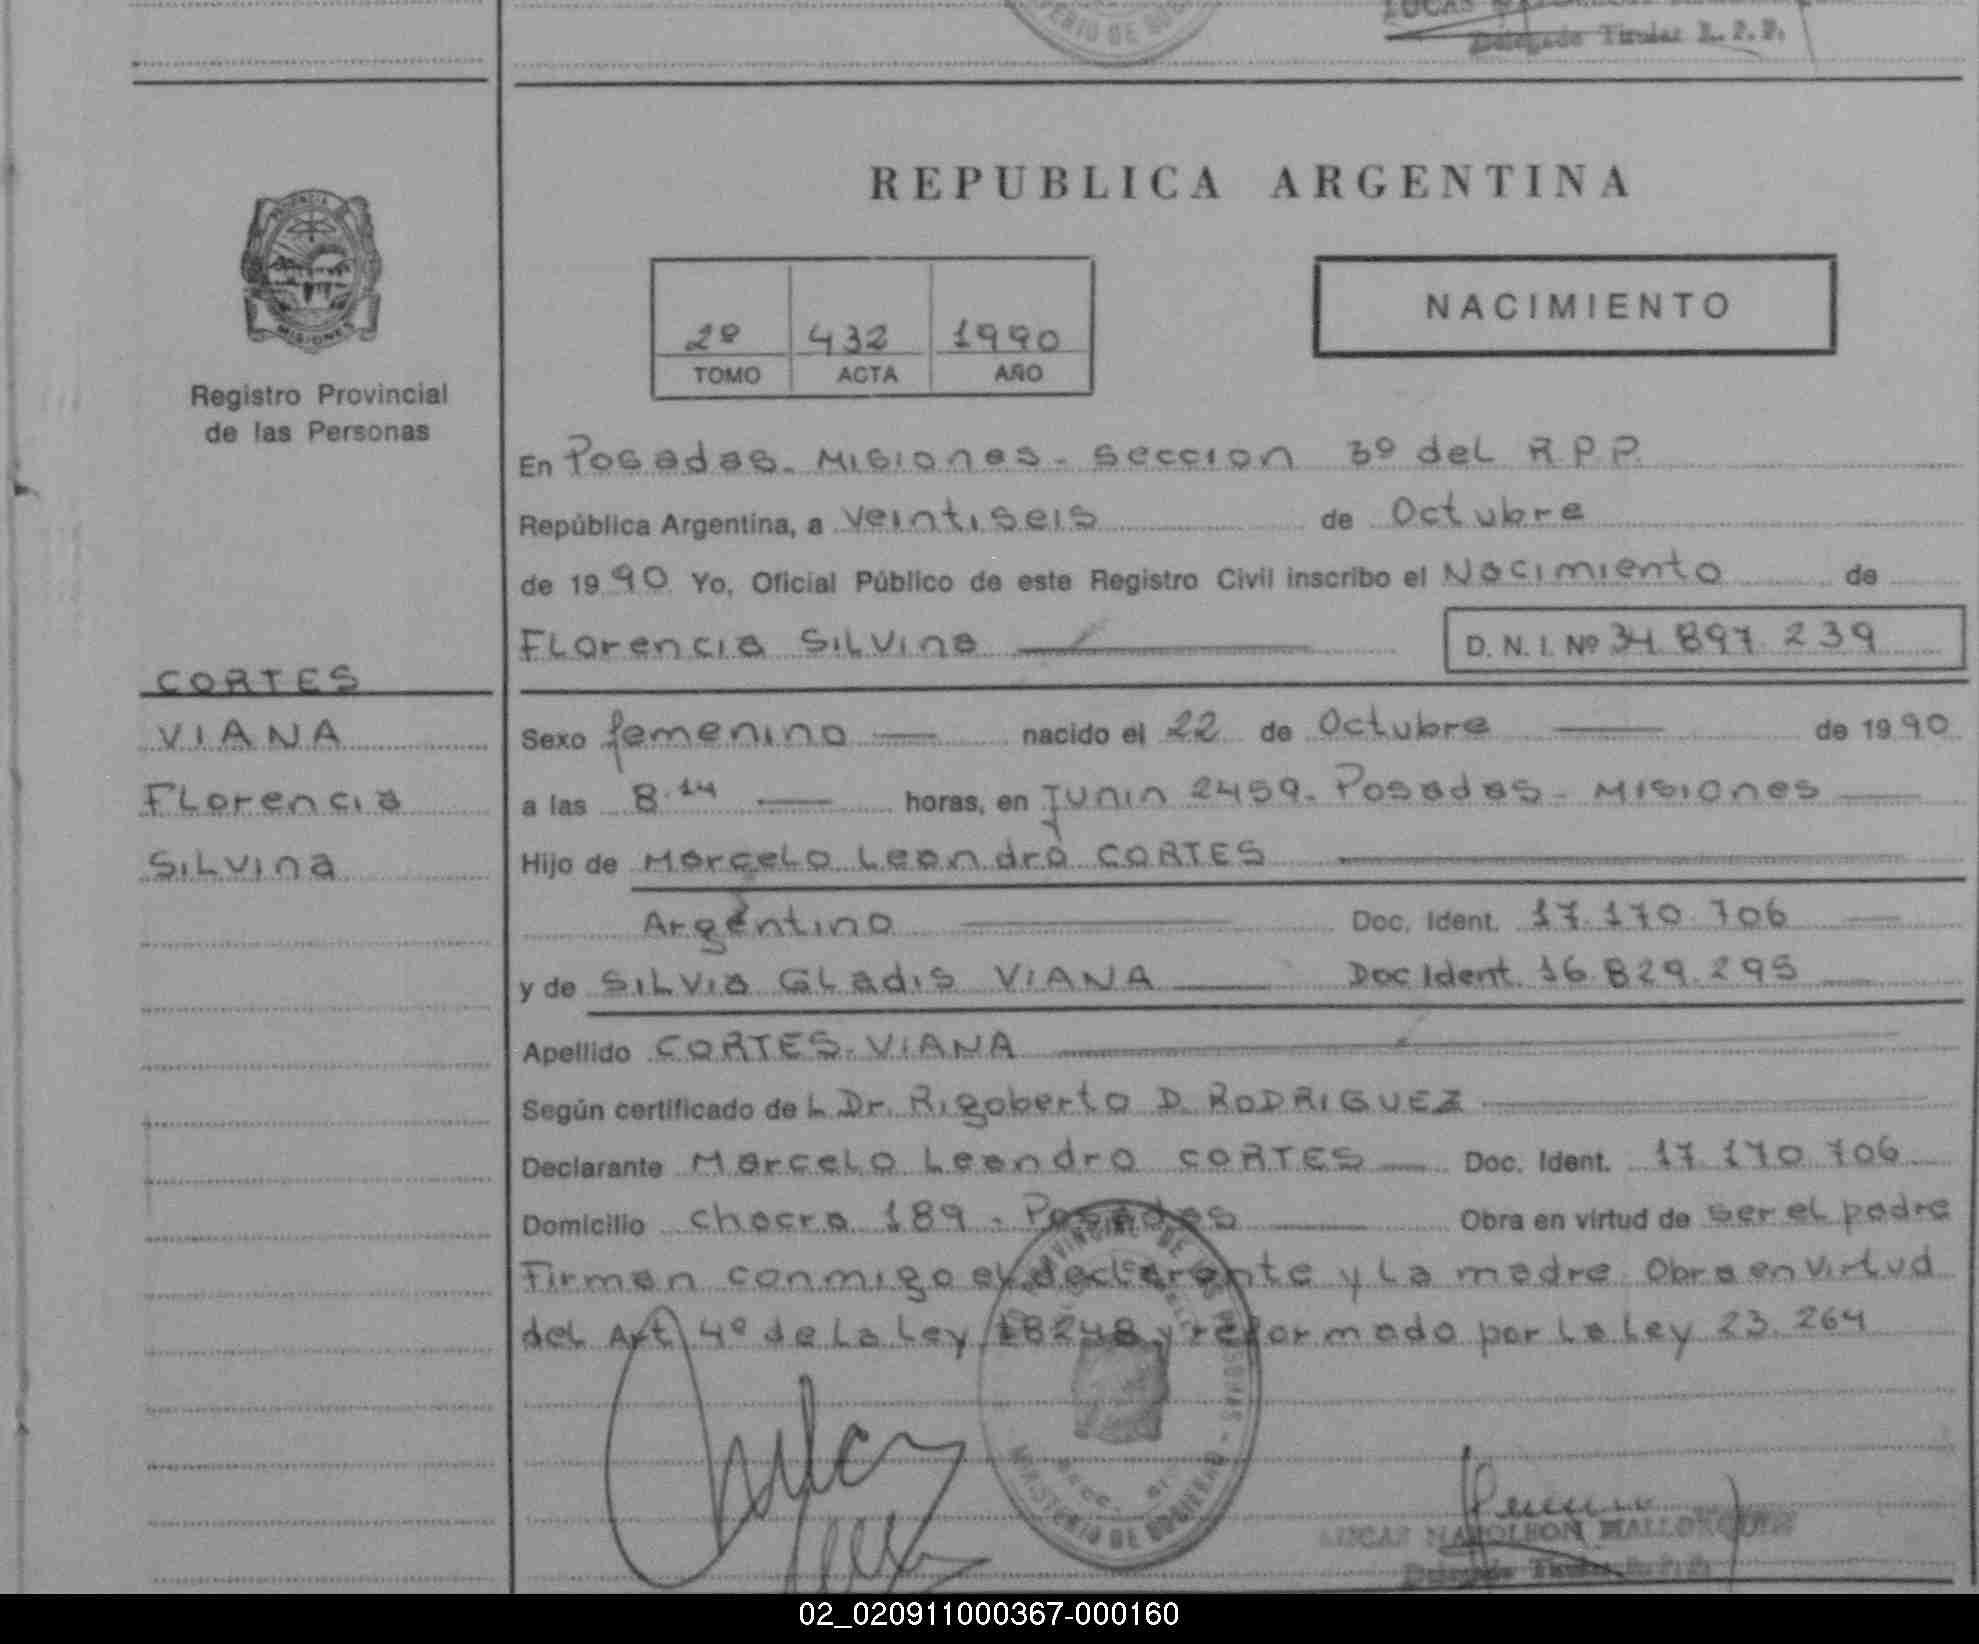 Delegado Titular R. P. P.
MINISTERIO DE GOB
REPUBLICA ARGENTINA
PROVINCIA
MISIONES
Registro Provincial
de las Personas
NACIMIENTO
2º 432 1990
TOMO ACTA AÑO
En Posadas - Misiones - Seccion 3º del R.P.P.
República Argentina, a veintiseis de Octubre
de 1990 Yo, Oficial Público de este Registro Civil inscribo el Nacimiento de
Florencia Silvina
D. N. I. Nº 34.897.239
CORTES
VIANA
Florencia
Silvina
Sexo femenino nacido el 22 de Octubre de 1990
a las 8.14 horas, en Junin 2459. Posadas - Misiones
Hijo de Marcelo Leandro CORTES
Argentino Doc. Ident. 17.170.706
y de Silvia Gladis VIANA Doc Ident. 16.829.295
Apellido CORTES VIANA
Según certificado de L Dr. Rigoberto D. RODRIGUEZ
Declarante Marcelo Leandro CORTES Doc. Ident. 17.170.706
Domicilio Chacra 189 - Posadas Obra en virtud de ser el padre
Firman conmigo el declarante y la madre Obra en virtud
del Art 4º de la Ley 18248 y reformado por la Ley 23.264
PROVINCIAL DE LAS PERSONAS
MINISTERIO DE GOBIERNO
LUCAS NAPOLEON MALLORQUIN
Delegado Titular R. P. P.
02_020911000367-000160